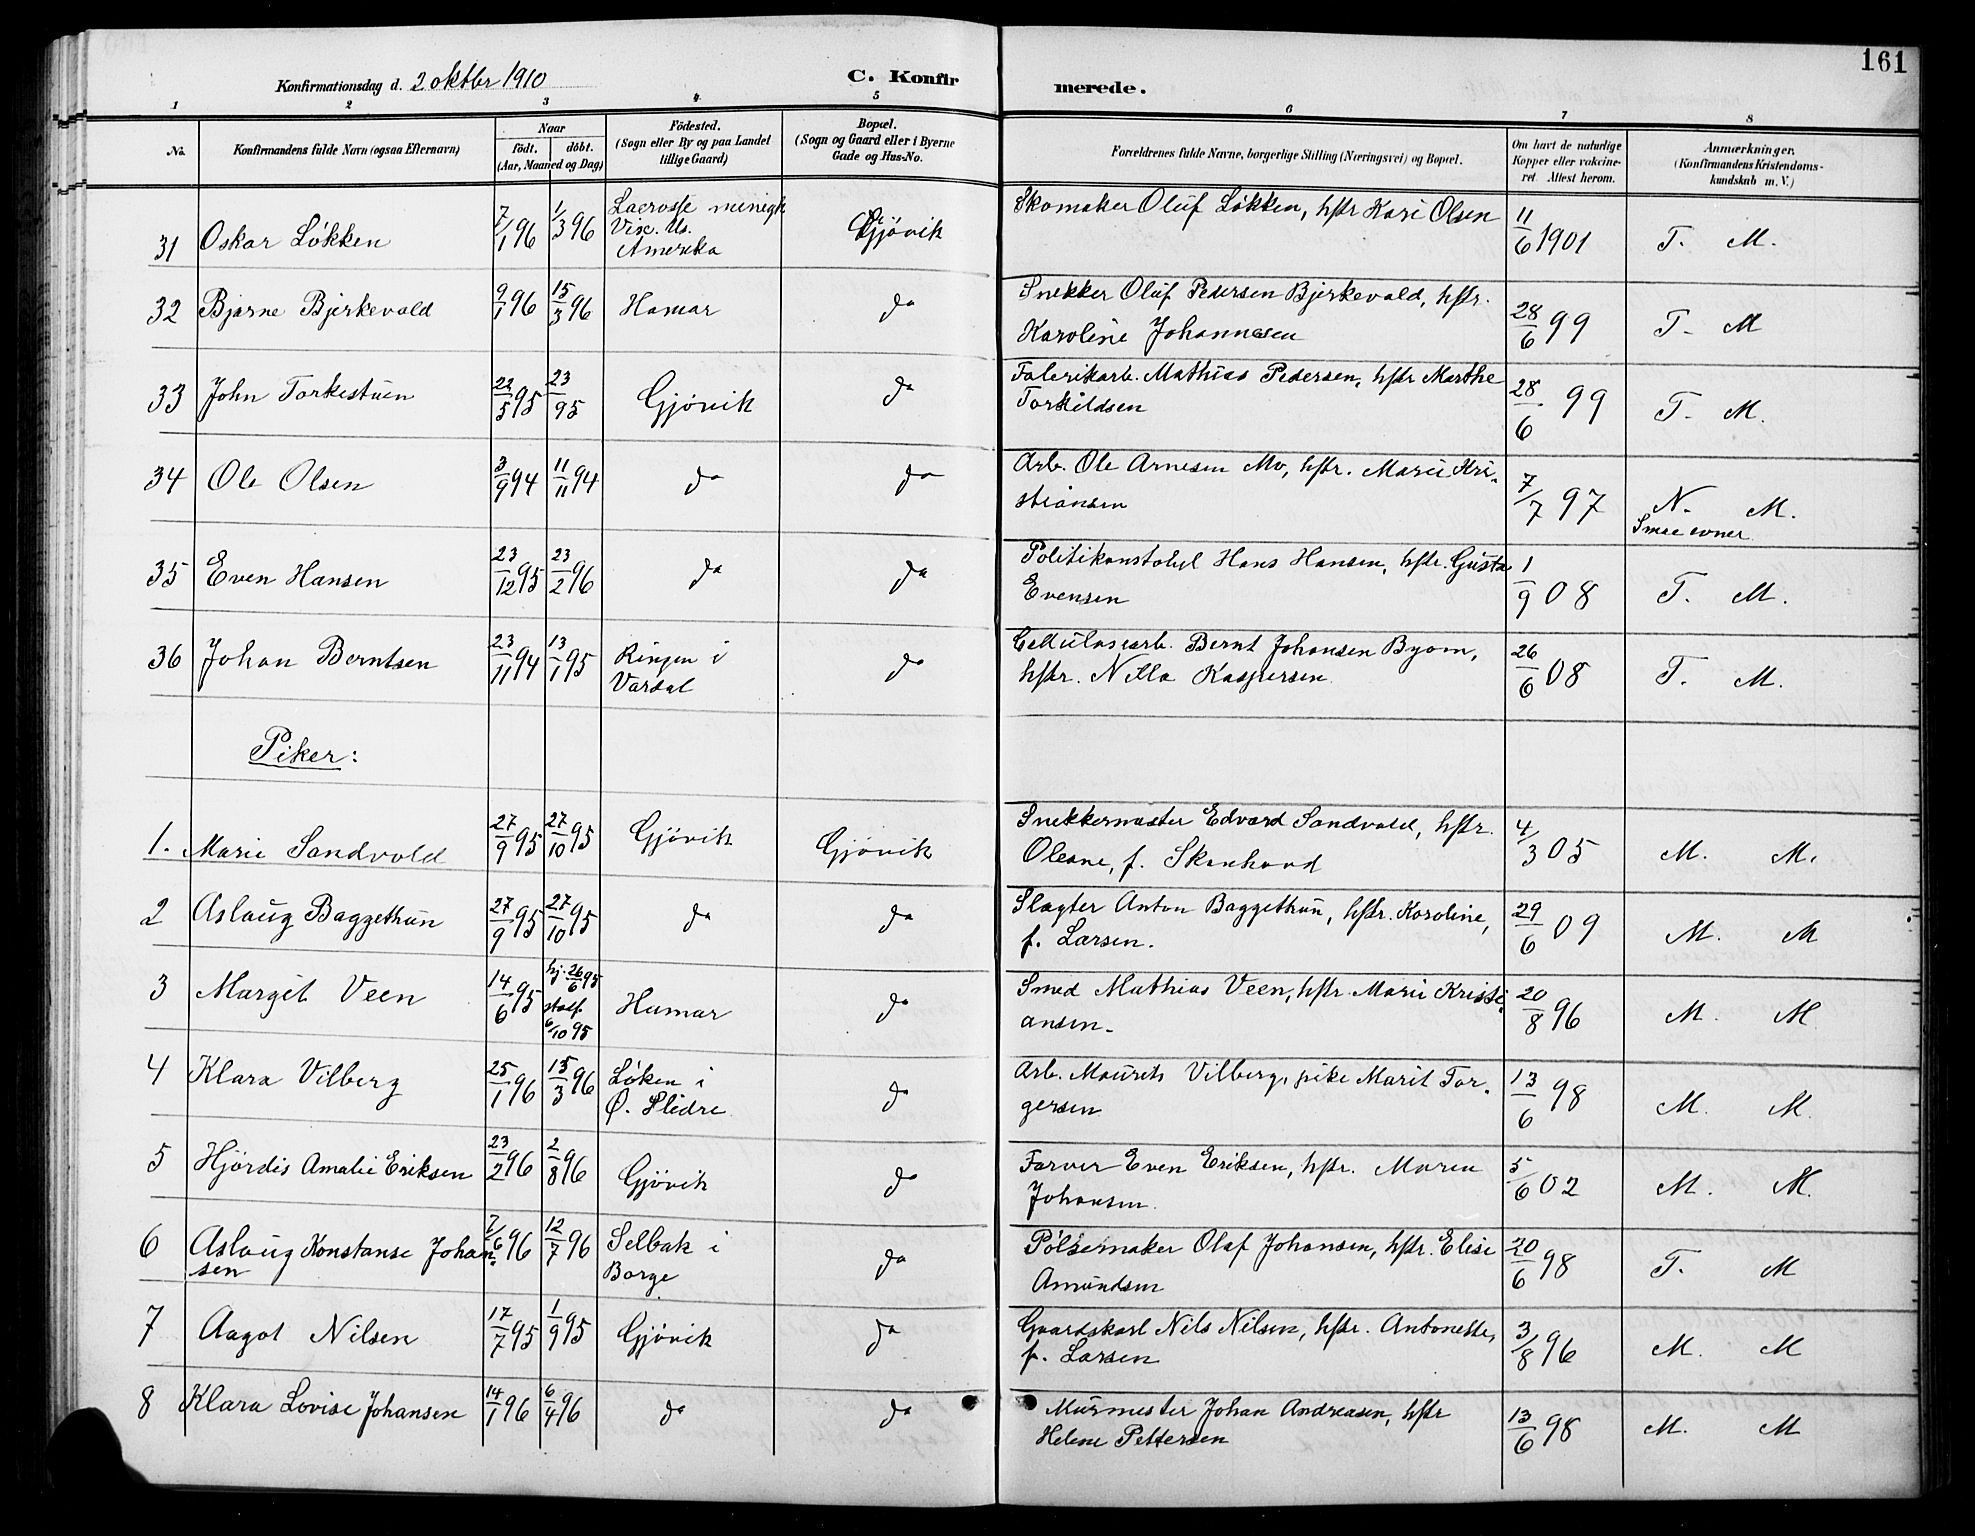 161
Konfirmationsdag d. 2 oktbr 1910
C. Konfirmerede.
1 2 3 4 5 6 7 8
No. Konfirmandens fulde Navn (ogsaa Efternavn) Naar født. døbt. (Aar, Maaned og Dag) Födested. (Sogn eller By og paa Landet tillige Gaard) Bopæl. (Sogn og Gaard eller i Byerne Gade og Hus-No. Forældrenes fulde Navne, borgerlige Stilling (Næringsvei) og Bopæl. Om havt de naturlige Kopper eller vakcineret. Attest herom. Anmærkninger. (Konfirmandens Kristendomskundskab m. V.)
31 Oskar Løkken 7/1 96 1/3 96 Lacrosse Visc. Us. Amerika Gjøvik Skomaker Oluf Løkken, hstr Kari Olsen 11/6 1901 T. M.
32 Bjarne Bjerkevold 9/1 96 15/3 96 Hamar do Snekker Oluf Pedersen Bjerkevold, hstr.
Karoline Johannesen 28/6 99 T- M
33 John Torkestuen 22/5 95 23/95 Gjøvik do Fabrikarb. Mathias Pedersen, hstr Marthe
Torkildsen 28/6 99 T- M.
34 Ole Olsen 3/9 94 11/11 94 do do Arb. Ole Arnesen Mo, hstr. Marie Kri-
stiansen 7/7 97 N. M.
Smaa evner
35 Even Hansen 23/12 95 23/2 96 do do Politikonstabel Hans Hansen, hstr. Gusta
Evensen 1/9 08 T. M.
36 Johan Berntsen 23/11 94 13/1 95 Ringen i
Vardal do Cellulosearb. Bernt Johansen Byom,
hstr. Nilla Kaspersen 26/6 08 T. M.
Piker:
1. Marie Sandvold 27/9 95 27/10 95 Gjøvik Gjøvik Snekkermester Edvard Sandvold, hstr.
Oleane, f. Skonhovd 4/3 05 M. M.
2 Aslaug Baggethun 27/9 95 27/10 95 do do Slagter Anton Baggethun, hstr. Karoline,
f. Larsen. 29/6 09 M. M
3 Margit Veen 14/6 95 hj. 26/6 95
stadf.
6/10 95 Hamar do Smed Mathias Veen, hstr. Marie Kristi-
ansen- 20/8 96 M. M
4 Klara Vilberg 25/1 96 15/3 96 Løken i
Ø. Slidre do Arb. Maurits Vilberg, pike Marit Tor-
gersen 13/6 98 M. M.
5 Hjørdis Amalie Eriksen 23/2 96 2/8 96 Gjøvik do Farver Even Eriksen, hstr. Maren
Johansen. 5/6 02 M. M.
6 Aslaug Konstanse Johan-
sen 7/6 96 12/7 96 Selbak i
Borge do Pølsemaker Olaf Johansen, hstr. Elise
Amundsen 20/6 98 T. M
7 Aagot Nilsen 17/7 95 1/9 95 Gjøvik do Gaardskarl Nils Nilsen, hstr. Antonette,
f. Larsen 3/8 96 M. M
8 Klara Lovise Johansen 14/1 96 6/4 96 do do Murmester Johan Andreasen, hstr
Helene Pettersen 13/6 98 M. M